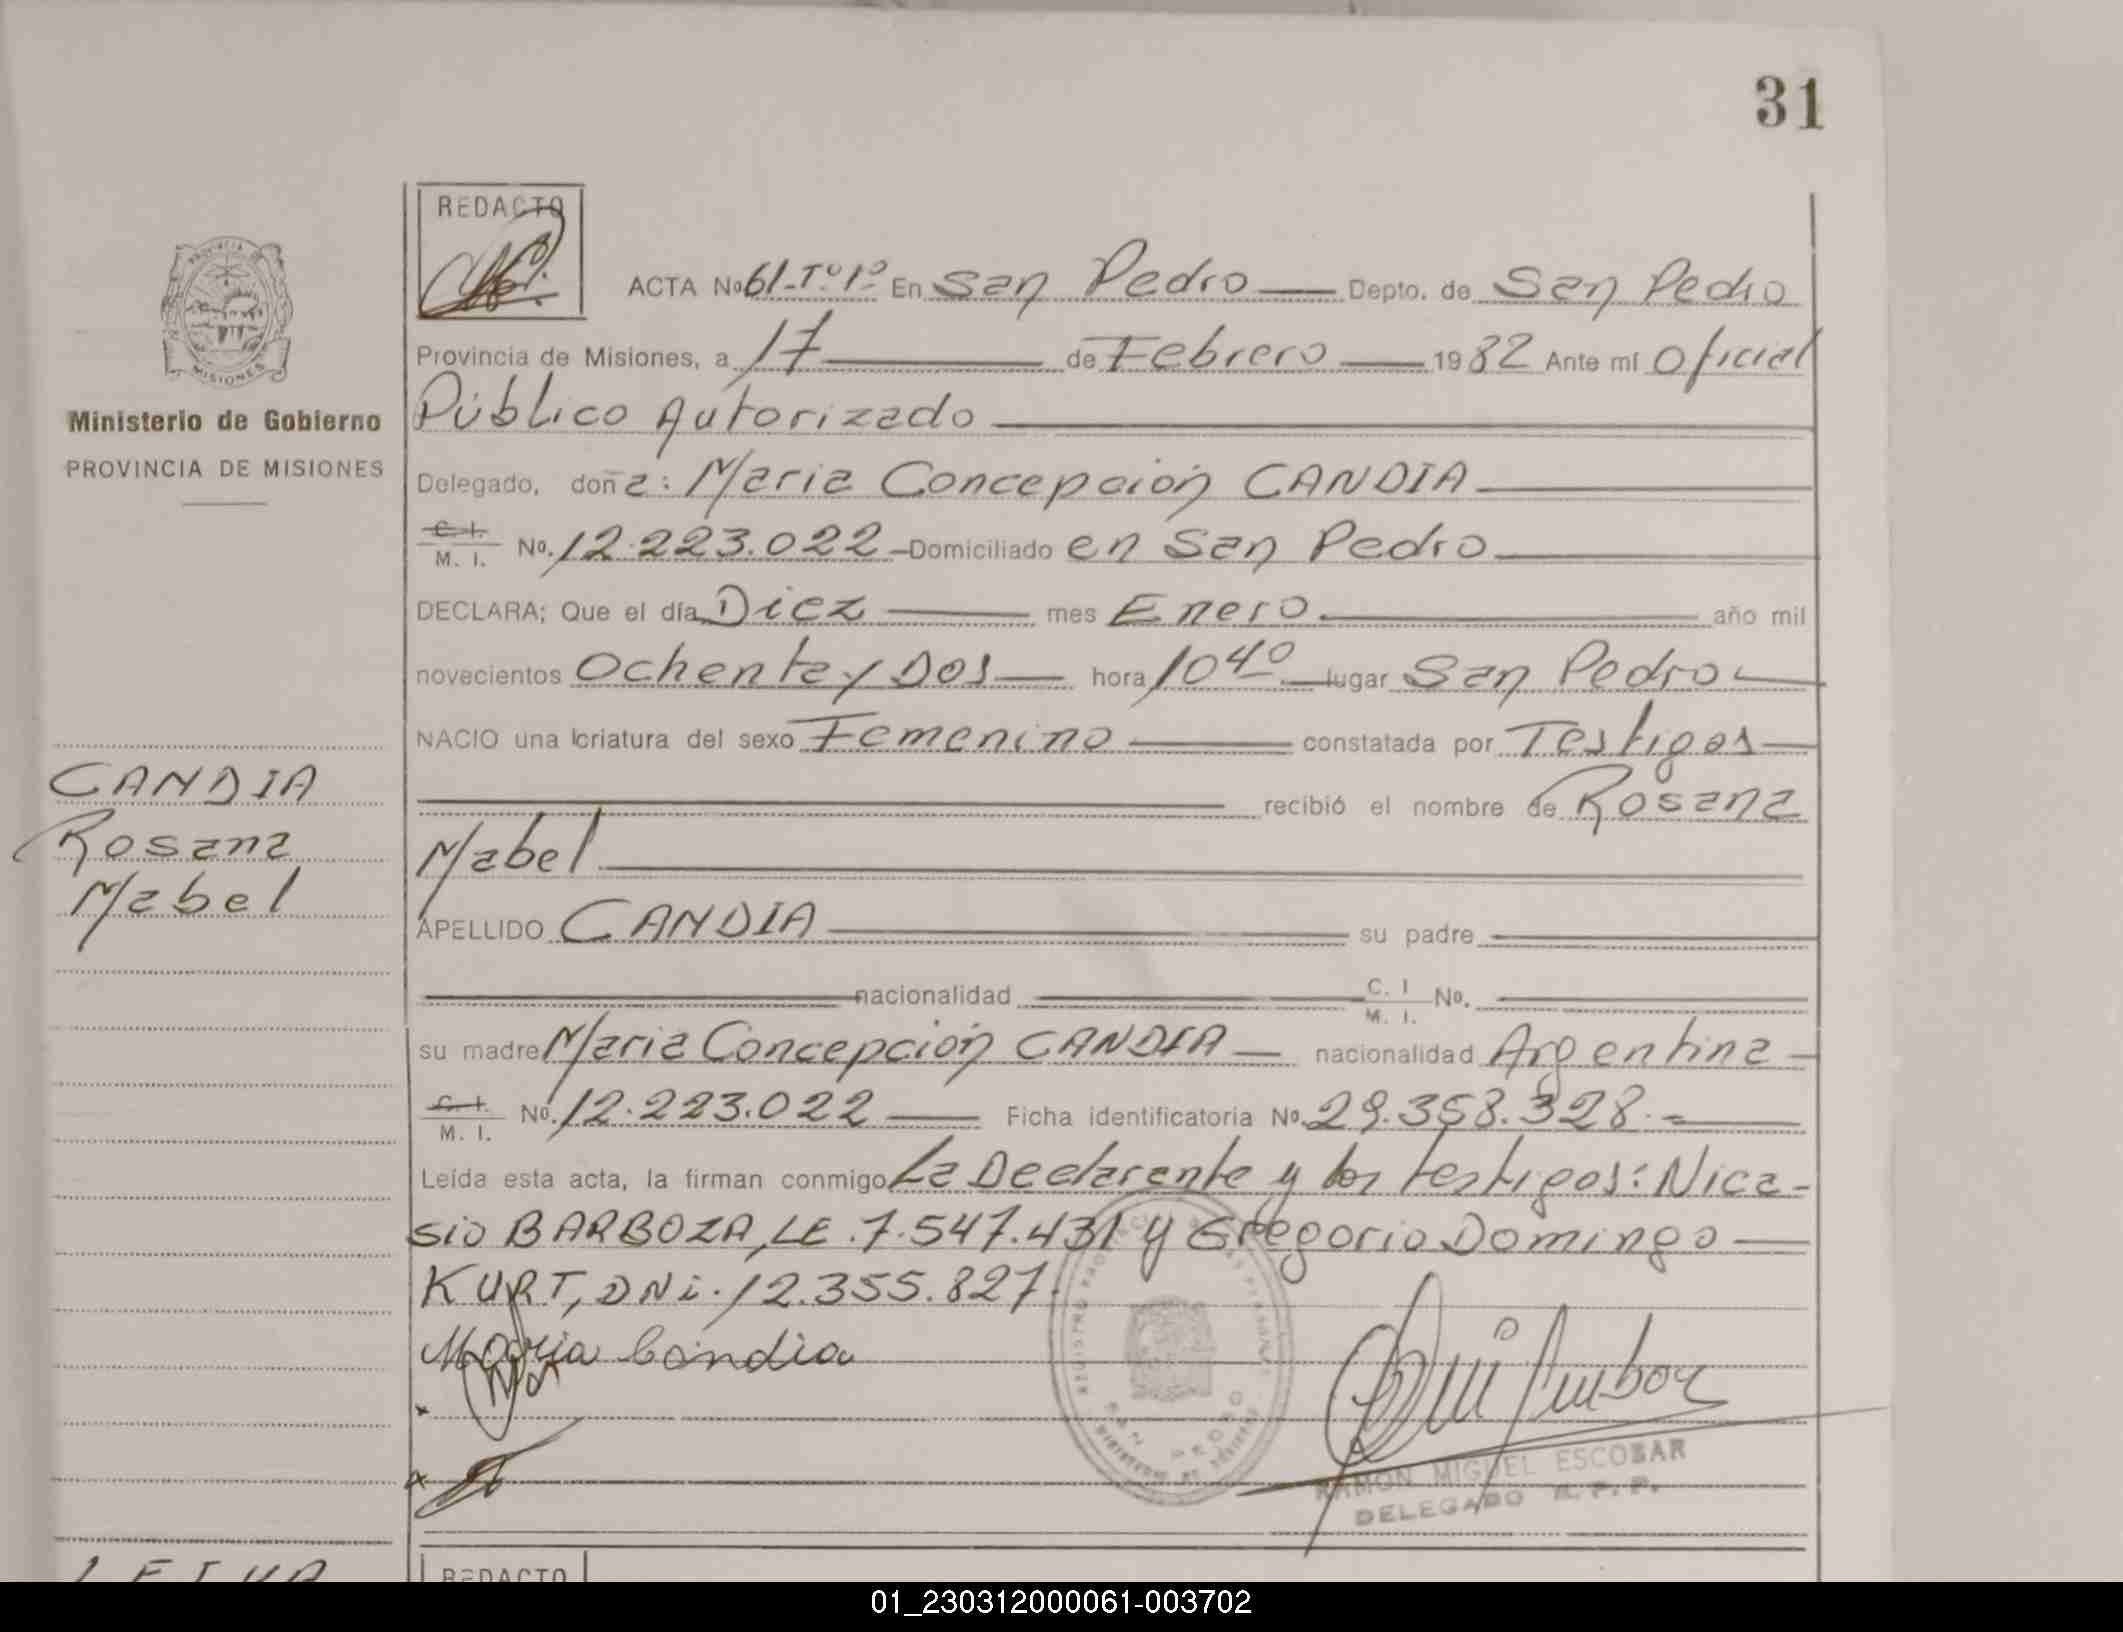 31
REDACTO
ACTA No. 61-Tº1º En San Pedro Depto. de San Pedro
Provincia de Misiones, a 17 de Febrero 1982 Ante mí Oficial
Público Autorizado
Ministerio de Gobierno
PROVINCIA DE MISIONES
Delegado, doña: Maria Concepción CANDIA
C. I.
M. I. No. 12.223.022 Domiciliado en San Pedro
DECLARA; Que el día Diez mes Enero año mil
novecientos Ochenta y Dos hora 10 40 lugar San Pedro
NACIO una criatura del sexo Femenino constatada por Testigos
CANDIA
Rosana
Mabel
recibió el nombre de Rosana
Mabel
APELLIDO CANDIA su padre
nacionalidad C. I. M. I. No.
su madre Maria Concepción CANDIA nacionalidad Argentina
C. I.
M. I. No. 12.223.022 Ficha identificatoria No. 29.358.328.=
Leída esta acta, la firman conmigo La Declarante y los testigos: Nica-
sio BARBOZA, LE.7.547.431 y Gregorio Domingo
KURT, DNi.12.355.827.
Maria Candia
RAMON MIGUEL ESCOBAR
DELEGADO R. P. P.
LEIVA
REDACTO
01_230312000061-003702